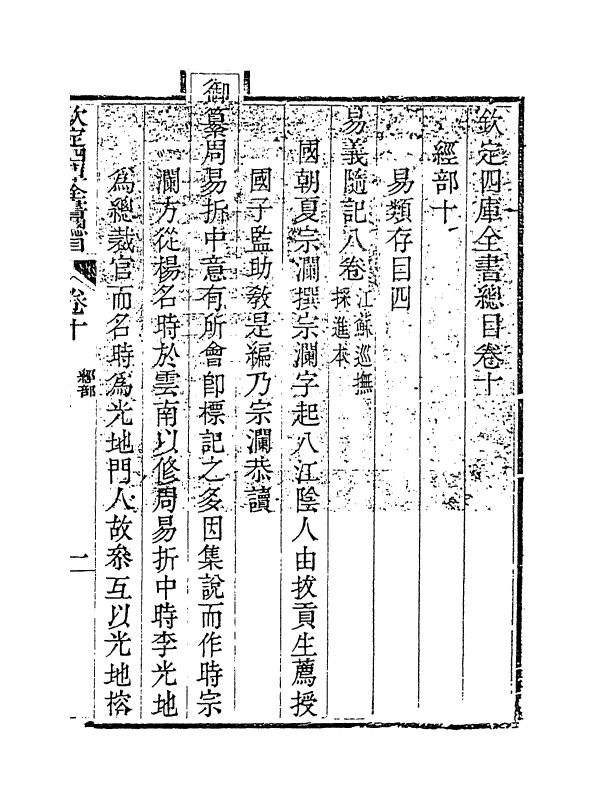 欽定四庫全書總目卷十
經部十
易類存目四
易義隨記八卷江蘇巡撫
採進本
國朝夏宗瀾撰宗瀾字起八江陰人由拔貢生薦授
國子監助教是編乃宗瀾恭讀
御纂周易折中意有所會卽標記之多因集說而作時宗
瀾方從楊名時於雲南以修周易折中時李光地
為總裁官而名時為光地門人故參互以光地榕
欽定四庫全書總目
卷十
經部
一